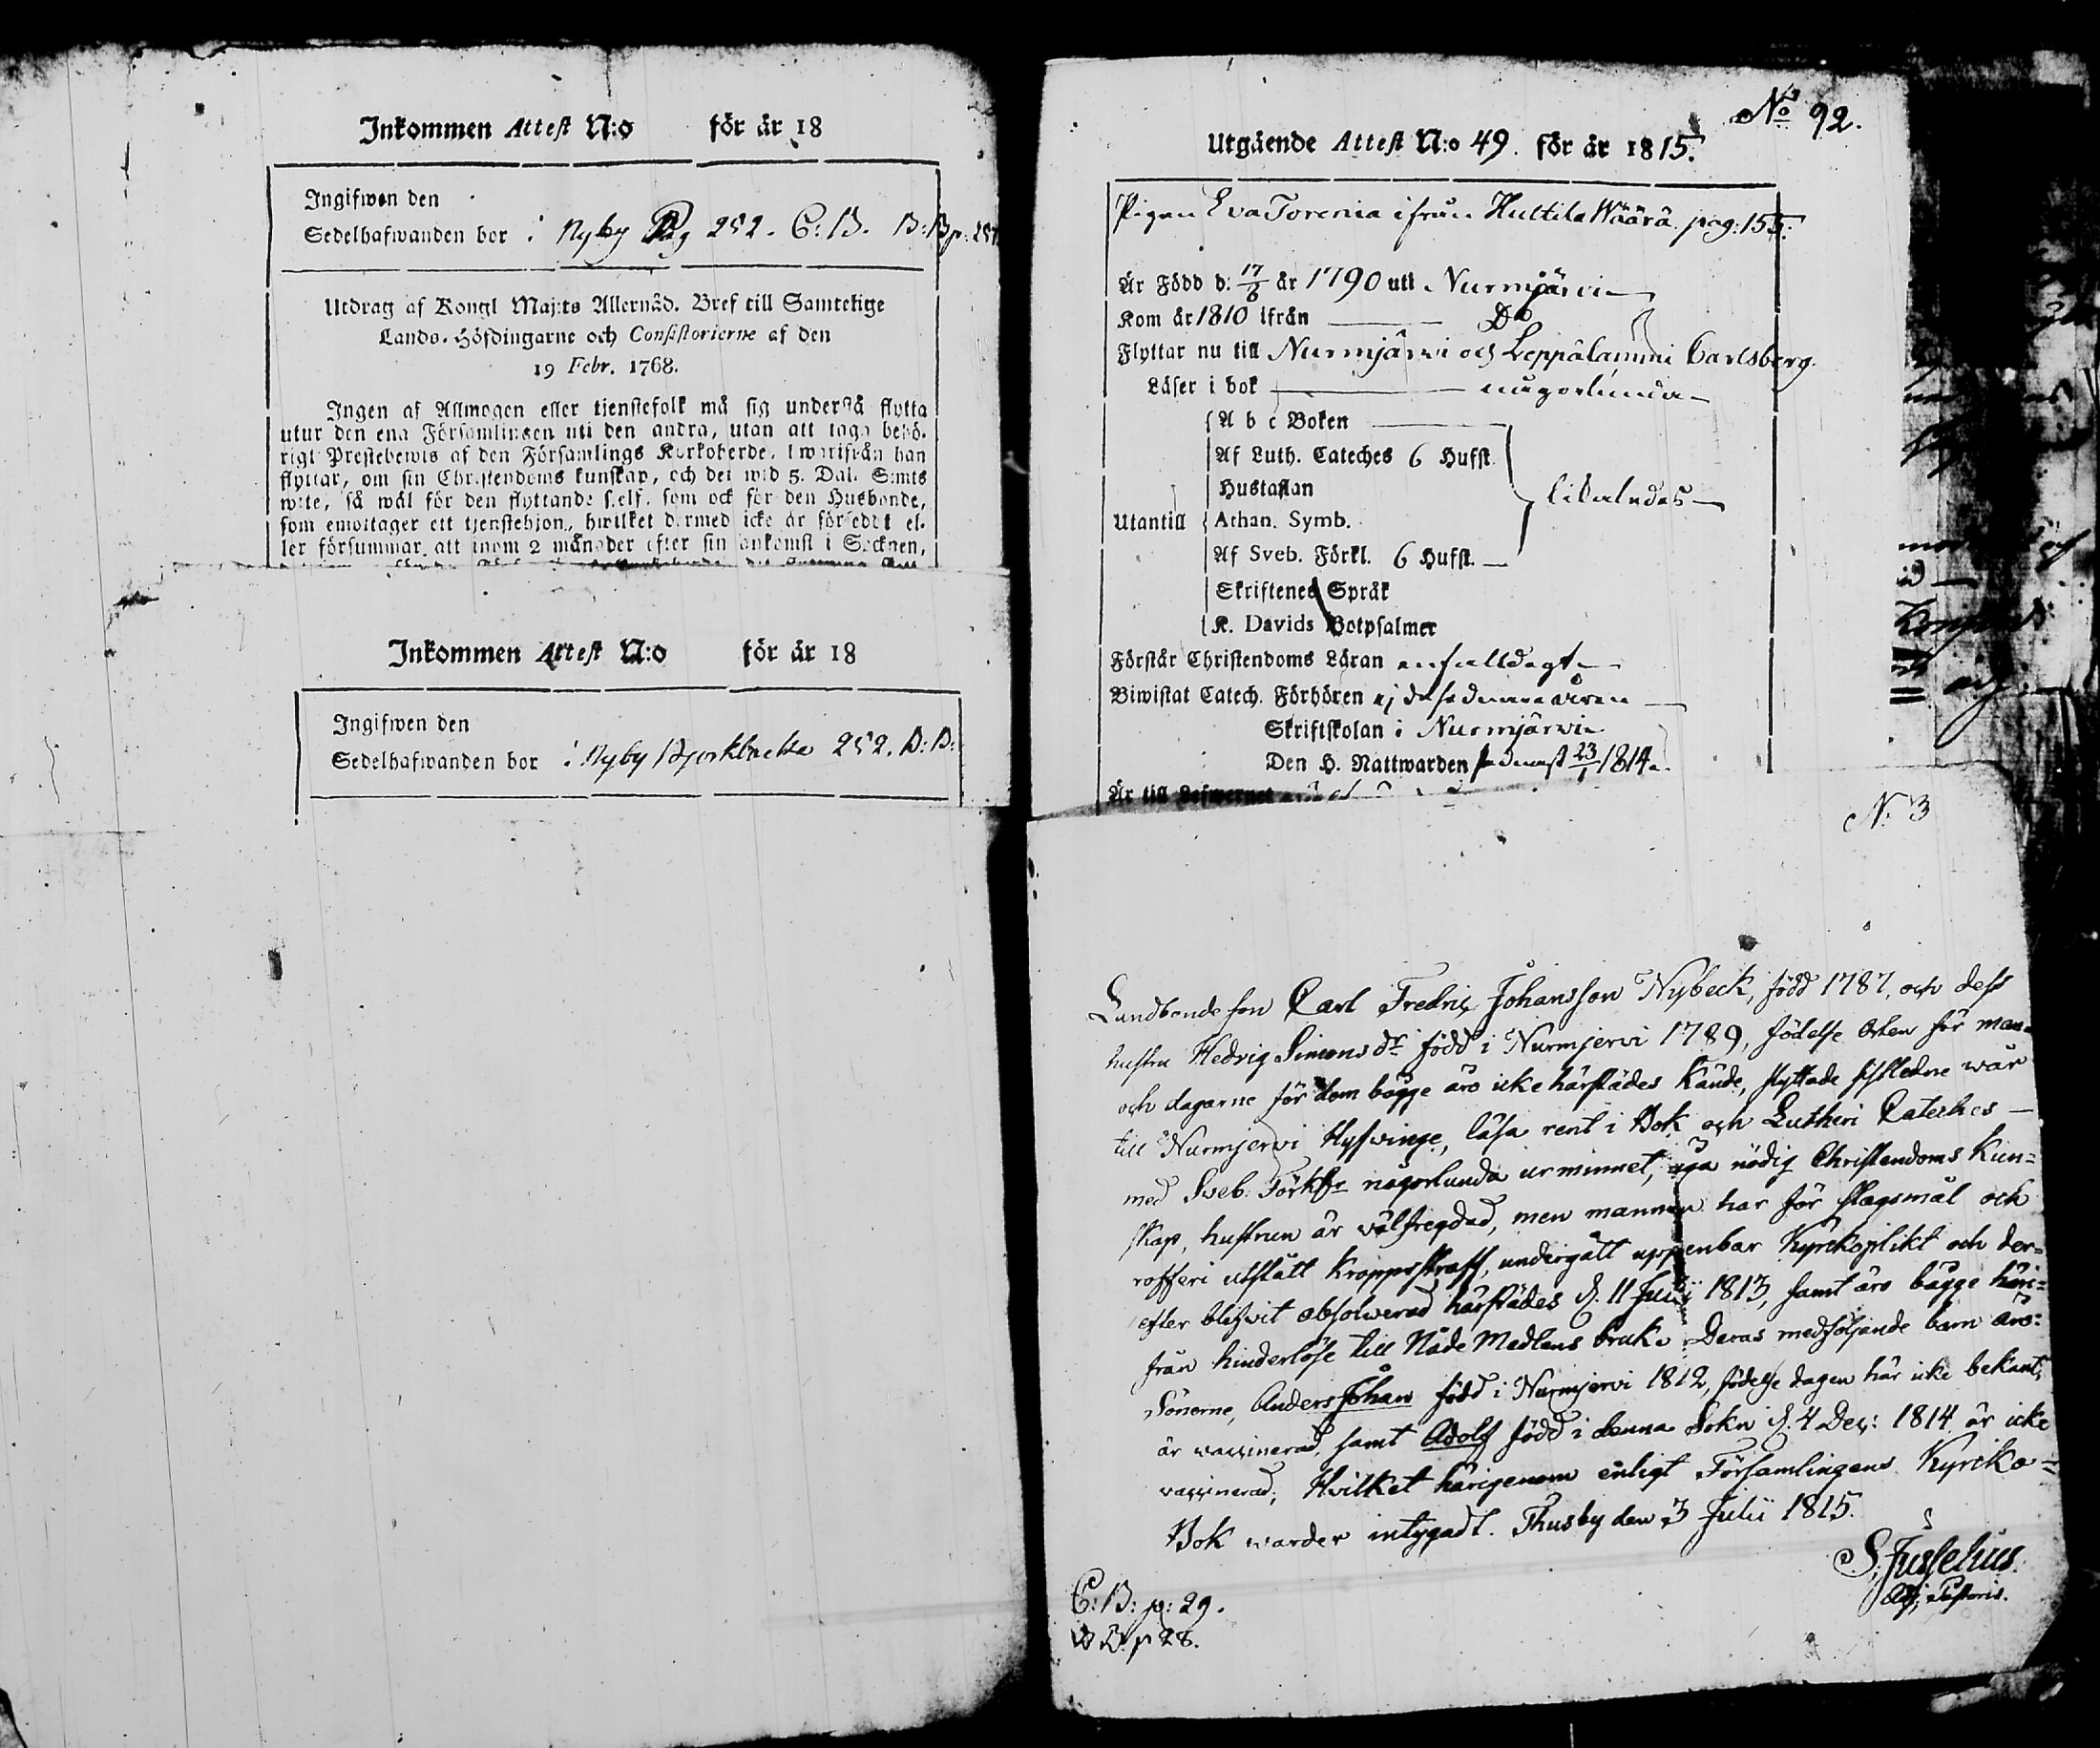 Inkommen Attest N:o för år 18
Ingifwen den
Sedelhafwanden bor i Nyby Pag 252. C:B. B:B p. 257
Utdrag af Kongl Maj:ts Allernåd. Bref till Samtelige
Lands-Höfdingarne och Consistorierne af den
19 Febr. 1768.
Ingen af Allmogen eller tjenstefolk må sig understå flytta
utur den ena Församlingen uti den andra, utan att taga behö-
rigt Prestebewis af den Församlings Kyrkoherde, hwarifrån han
flyttar, om sin Christendoms kunskap, och det wid 5. Dal. S:mts
wite, så wäl för den flyttande sjelf, som ock för den Husbonde,
som emottager ett tjenstehjon, hwilket dermed icke är försedt el-
ler försummar att inom 2 månader efter sin ankomst i Socknen,
Inkommen Attest N:o för år 18
Ingifwen den
Sedelhafwanden bor i Nyby Bjorkbacka 252. B:B:
No 92.
Utgående Attest N:o 49. för år 1815.
Pigan Eva Torenia ifrån Huttila Wäärä pag: 155.
Är Född d: 17/6 år 1790 uti Nurmijärvi
Kom år 1810 ifrån Do
Flyttar nu till Nurmjärwi och Leppälammi Carlsberg.
Läser i bok någorlunda
A b c Boken
Af Luth. Cateches 6 Hufst.
Hustaflan
likaledes
Utantill Athan. Symb.
Af Sveb. Förkl. 6 Hufst.
Skriftenes Språk
K. Davids Botpsalmer
Förstår Christendoms Läran enfalldigt
Biwistat Catech. Förhören ej de sednare åren
Skriftskolan i Nurmjärwi
Den H. Nattwarden sednast 23/1 1814.
Är till Lefwernet
N: 3
Landbonde son Carl Fredric Johansson Nybeck, född 1787, och dess
hustru Hedvig Simons dr född i Nurmjervi 1789, födelse Orten för man-
och dagarne för dem bägge äro icke härstädes kände, flyttade sistledne wår
till Nurmjervi Hyfvinge, läsa rent i Bok och Lutheri Cateches
med Sveb: Förklr någorlunda ur minnet, äga nödig Christendoms Kun-
skap, hustrun är välfregdad, men mannen har för slagsmål och
rofferi utstått Kroppsstraff, undergått uppenbar Kyrckoplikt och der-
efter blifwit absolwerad härstädes d. 11 Julii 1813, samt äro bägge häri-
från hinderlöse till Nåde Medlens bruk. Deras medföljande barn äro:
Sönerne, Anders Johan född i Nurmjervi 1812, födelse dagen här icke bekant,
är vaccinerad, samt Adolf född i denna Sokn d. 4 Dec: 1814 är icke
vaccinerad; Hvilket härigenom enligt Församlingens Kyrcko-
Bok warder intygadt. Thusby den 3 Julii 1815.
S. Juselius.
Adj. Pastoris.
C:B: p: 29.
B B. p 28.